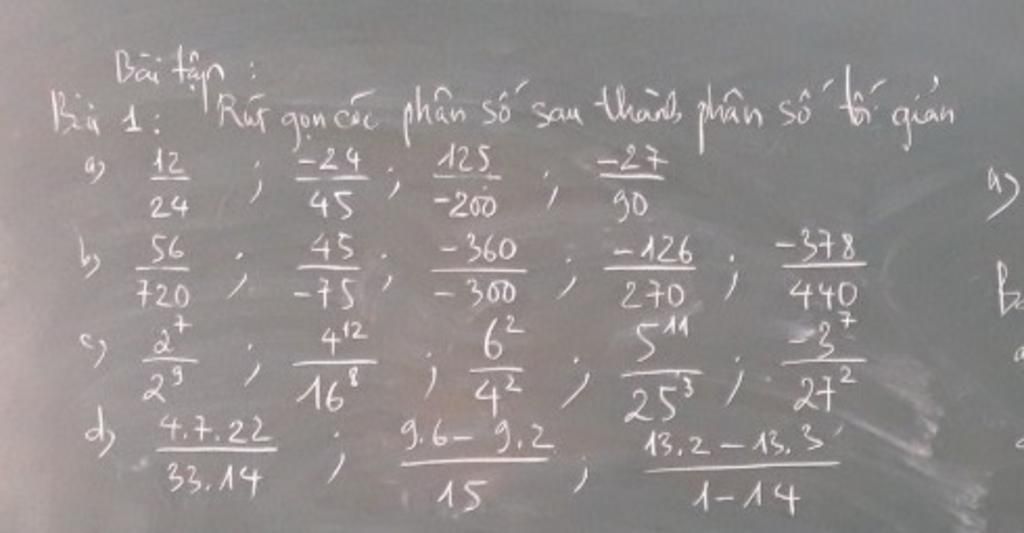 Bài tập :
Bài 1 : Rút gọn các phân số sau thành phân số tối giản
a) 12/24 ; -24/45 ; 125/-200 ; -27/90
b) 56/720 ; 45/-75 ; -360/-300 ; -126/270 ; -378/440
c) 2^7/2^9 ; 4^12/16^8 ; 6^2/4^2 ; 5^11/25^3 ; -3^7/27^2
d) 4.7.22/33.14 ; 9.6-9.2/15 ; 13.2-13.3/1-14
a)